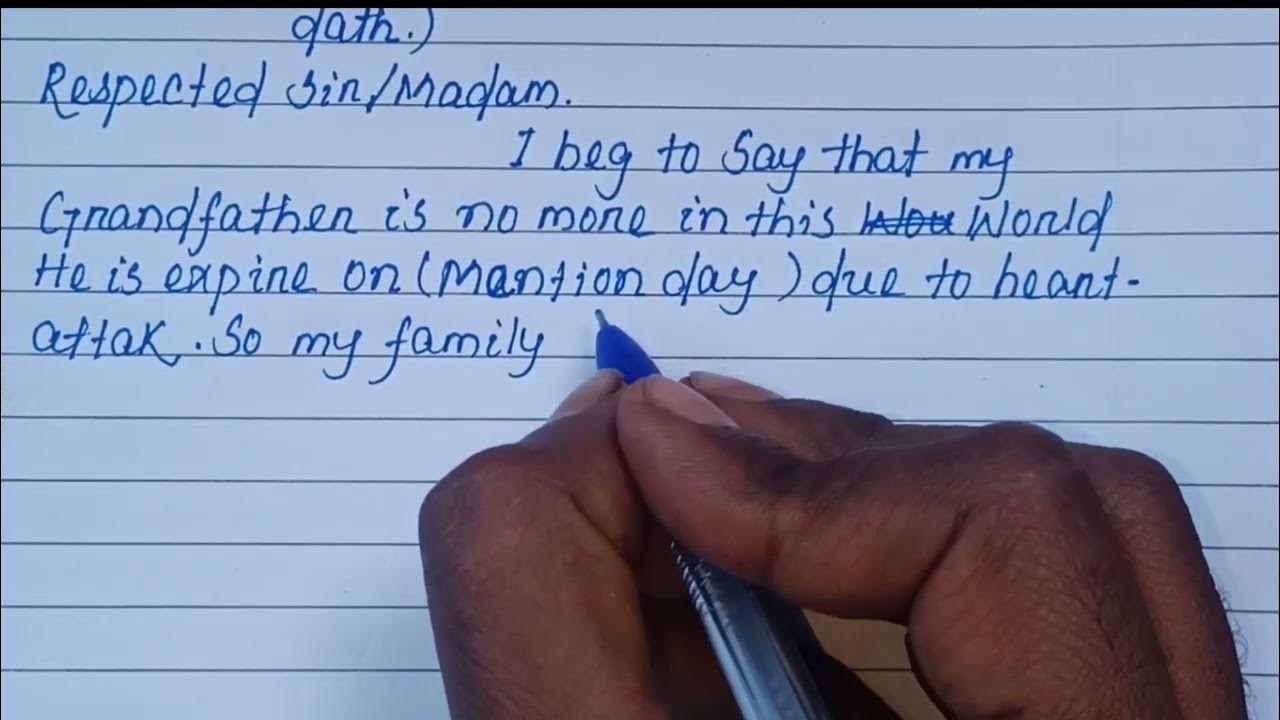 dath.)
Respected Sir/Madam.
I beg to Say that my
Grandfather is no more in this World
He is expire on (Mantion day) due to heart-
attak. So my family